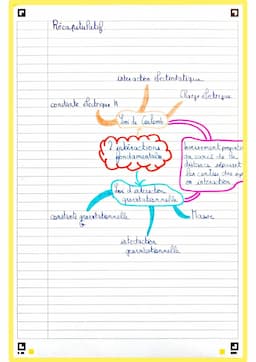 Récapitulatif
interaction électrostatique
Charge électrique
constante électrique K
Loi de Coulomb
2 intéractions
fondamentales
inversement proport
au carré de la
distance séparant
les centres des
en interaction
Loi d'attraction
gravitationnelle
constante gravitationnelle
Masse
intéraction
gravitationnelle